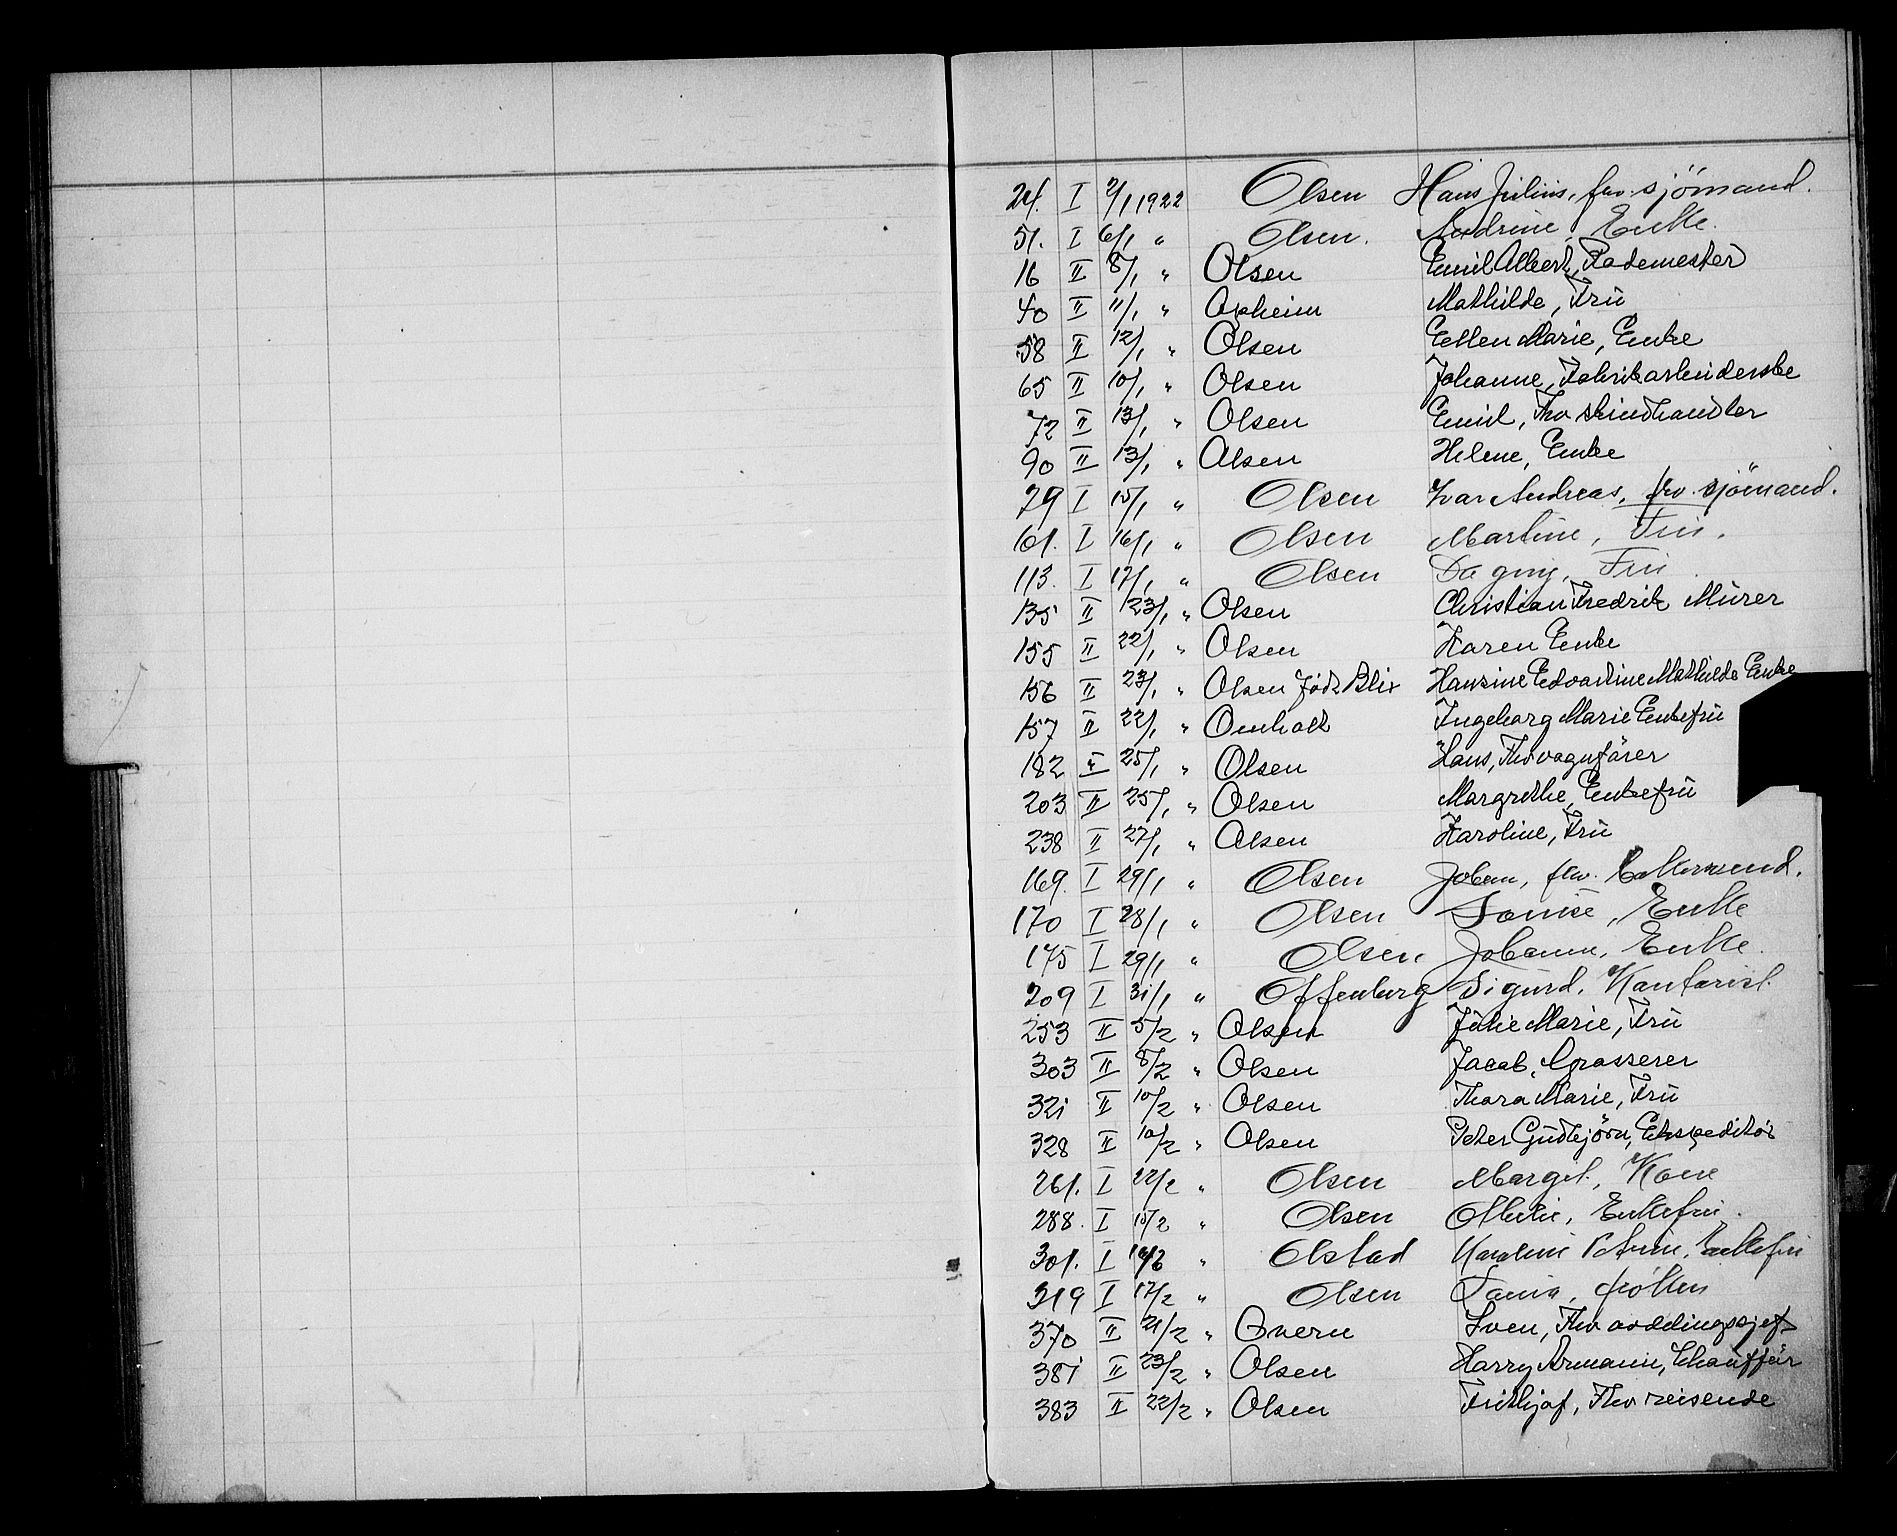 24. I 2/1 1922 Olsen Hans Julius, fhv. sjömand.
51. I 6/1 " Olsen. Andrine, Enke.
16 II 8/1 " Olsen Emil Albert, Rademester
40 II 11/1 " Opheim Mathilde, Frü
58 II 12/1 " Olsen Ellen Marie, Enke
65 II 10/1 " Olsen Johanne, Fabrikarbeiderske
72 II 13/1 " Olsen Emil, Fhv skindhandler
90 II 13/1 " Olsen Helene, Enke
79 I 15/1 " Olsen Ivar Andreas, fhv. sjömand.
101. I 16/1 " Olsen Martine, Frü.
113. I 17/1 " Olsen Dagny, Frü
135 II 23/1 " Olsen Christian Fredrik Mürer
155 II 22/1 " Olsen Karen Enke
156 II 23/1 " Olsen födt Blix Hansine Edvardine Mathilde Enke
157 II 22/1 " Omholt Ingeborg Marie Enkefrü
182 II 25/1 " Olsen Hans, Fhv vognförer
203 II 25/1 " Olsen Margrethe, Enkefrü
238 II 27/1 " Olsen Karoline, Frü
169. I 29/1 " Olsen Johan, fhv.
170 I 28/1 " Olsen Louise, Enke
175 I 29/1 " Olsen. Johanne, Enke.
209 I 31/1 " Offenberg Sigurd. Kontorist.
253 II 5/2 " Olsen Jülie Marie, Frü
303 II 8/2 " Olsen Jacob, Grosserer
321 II 10/2 " Olsen Thora Marie, Frü
328 II 10/2 " Olsen Peter Güdbjörn, Ekspeditör
261. I 22/2 " Olsen Margit, Kone
288. I 15/2 " Olsen Othilie, Enkefrü.
301. I " Olstad Karoline Petrine, Enkefrü
319 I 17/2 " Olsen fröken
370 II 21/2 " Qvern Sven, Fhv avdelingssjef
381 II 23/2 " Olsen Harry Armann, Chauffür
383 II 22/2 " Olsen Frithjof, Fhv reisende